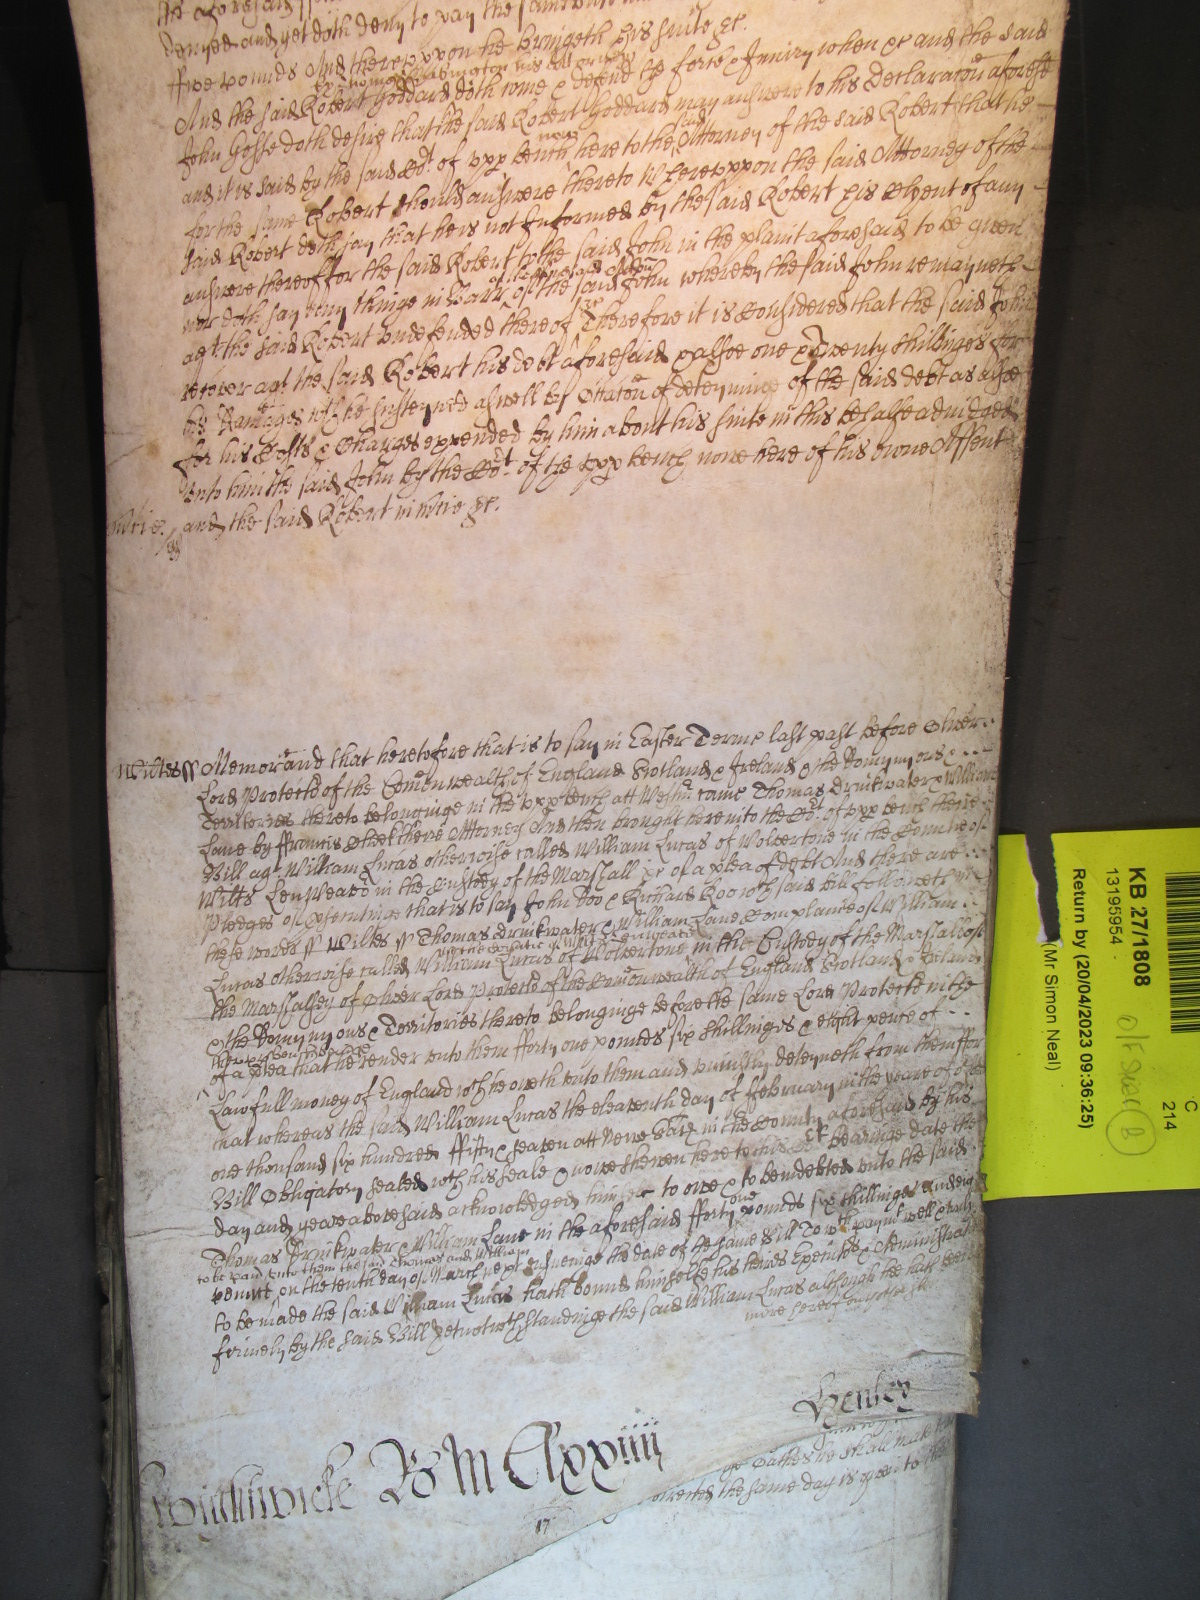 denyed and yet doth deny to pay the same
ffive pounds And thereuppon he bringeth his suite &c.
And the said Robert Goddard doth come & defend the force & Iniury when &c and the said
John Gosse doth desire that the said Robert Goddard may answere to his Declaracon aforesd
and it is said by the said Cort of upp bench now here to the said Attorney of the said Robert that he
for the same Robert should answere thereto Whereuppon the said Attorney of the
said Robert doth say that he is not Informed by the said Robert his Clyent of any
answere thereof for the said Robert to the said John in the plaint aforesaid to be given
nor doth say any thinge in Barr of the accon aforesaid of the said John whereby the said John remayneth
agt the said Robert undefended thereof &c Therefore it is Considered that the said John
recover agt the said Robert his debt aforesaid & alsoe one & Twenty shillings for
his Damages wch he susteyned aswell by Occacon of deteyninge of the said debt as alsoe
for his Costs & Charges expended by him about his suite in this behalfe adiudged
unto him the said John by the Cort of the upp bench nowe here of his owne Assent
mercie. and the said Robert in mercie &c.
Wiltes ss Memorand that heretofore that is to say in Easter Terme last past before Oliver
Lord Protector of the Comonwealth of England Scotland & Ireland & the Domynyons &
Territories thereto belonginge in the upp bench att Westmr came Thomas Drinkwater & William
Lane by ffrancis Cheek their Attorney And then brought here into the Cort of upp bench there
Bill agt William Lucas otherwise called William Lucas of Wolvertone in the Countie of
Wilts Lenweaver in the Custody of the Marshall &c of a plea of debt And there are
Pledges of prosecutinge that is to say John Doo & Richard Roo wch said Bill followeth in
these words ss Wiltes ss Thomas Drinkwater & William Lane Complaine of William
Lucas otherwise called William Lucas of Wolvertone in the Countie of Wilts Lenweaver in the Custody of the Marshall of
the Marshalsey of Oliver Lord Protector of the Comonwealth of England Scotland & Ireland
& the Domynyons & Territories thereto belonginge before the same Lord Protector in the
the upper bench
of a plea that he render unto them fforty one pounds six shillinges & eight pence of
Lawfull money of England wch he oweth unto them and uniustly deteyneth from them ffor
that whereas the said William Lucas the eleaventh day of ffebruary in the yeare of or Lord
one thousand six hundred ffifty & seaven att Newe Sarum in the County aforesaid by his
Bill Obligatory sealed wth his seale & nowe shewen here to this Cort bearinge date the
day and yeare abovesaid acknowledged himself to owe & to be indebted unto the said
Thomas Drinkwater & William Lane in the aforesaid fforty one pounds six shillinges and eight
to be paid unto them the said Thomas and William
pence on the tenth day of March next ensueinge the date of the same Bill To wch paymt well & truly
to be made the said William Lucas hath bound himselfe his heires Executors & Administrators
firmely by the said Bill Yet notwthstandinge the said William Lucas although he hath been
more hereof on other side
Henley
Wightwicke Ro M Clxxiiii
17
oathes he shall make
the same day is given to the
KB 27/1808
13195954
Return by (20/04/2023 09:36:25)
(Mr Simon Neal)
B
C
214